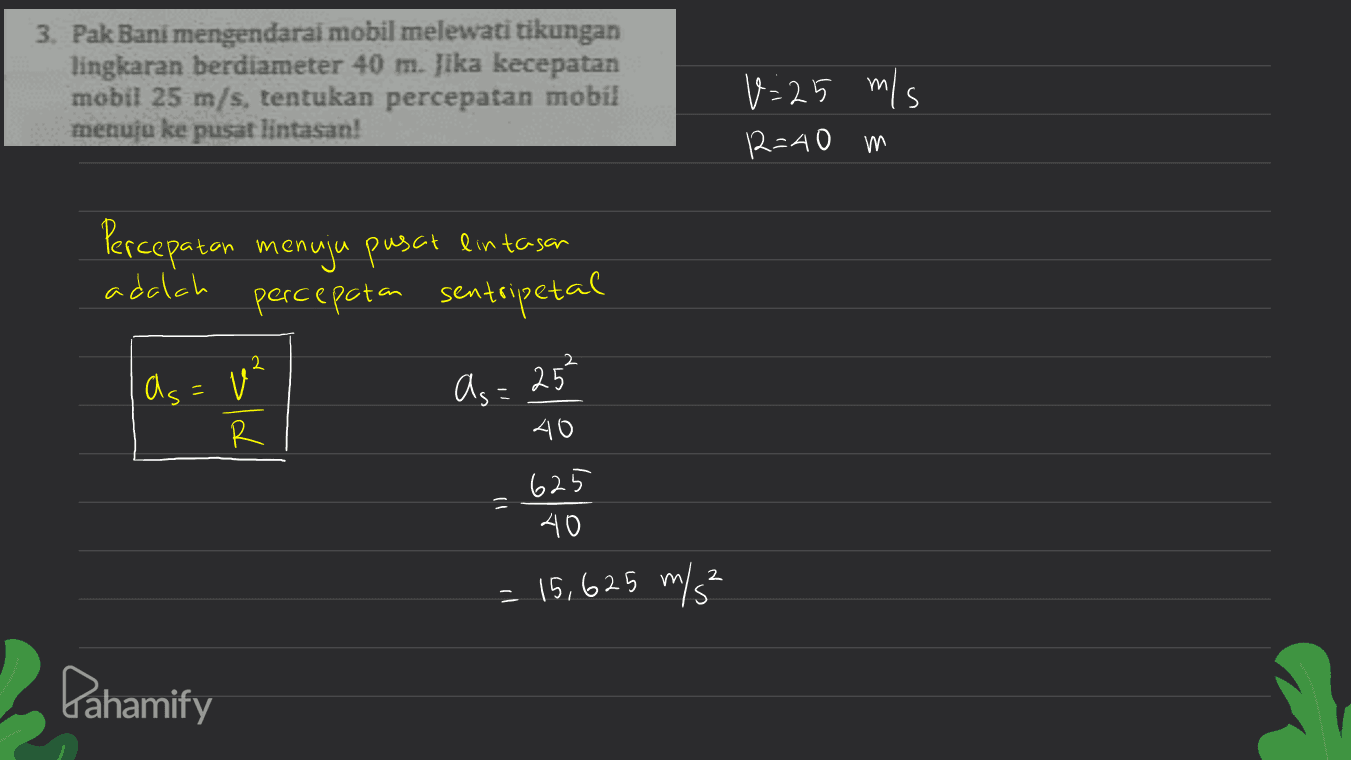 3. Pak Bani mengendarai mobil melewati tikungan
lingkaran berdiameter 40 m. Jika kecepatan
mobil 25 m/s, tentukan percepatan mobil
menuju ke pusat lintasan!
V=25 m/s
R=40 m
Percepatan menuju pusat lintasan
adalah percepatan sentripetal
as = V²/R
as = 25²/40
= 625/40
= 15,625 m/s²
Pahamify